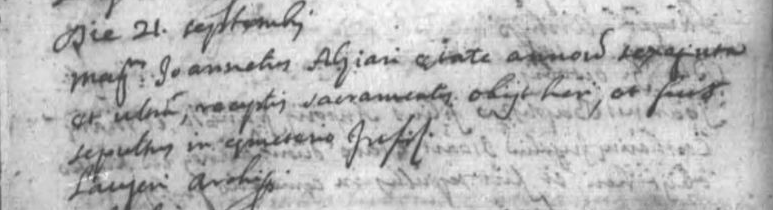 Die 21. septembris
mag.r Joannetus Alziari ętate annorũ sexaginta
et ultrã, receptis sacramentis obijt heri, et fuit
sepultus in cęmeterio
Laugeri Archip.